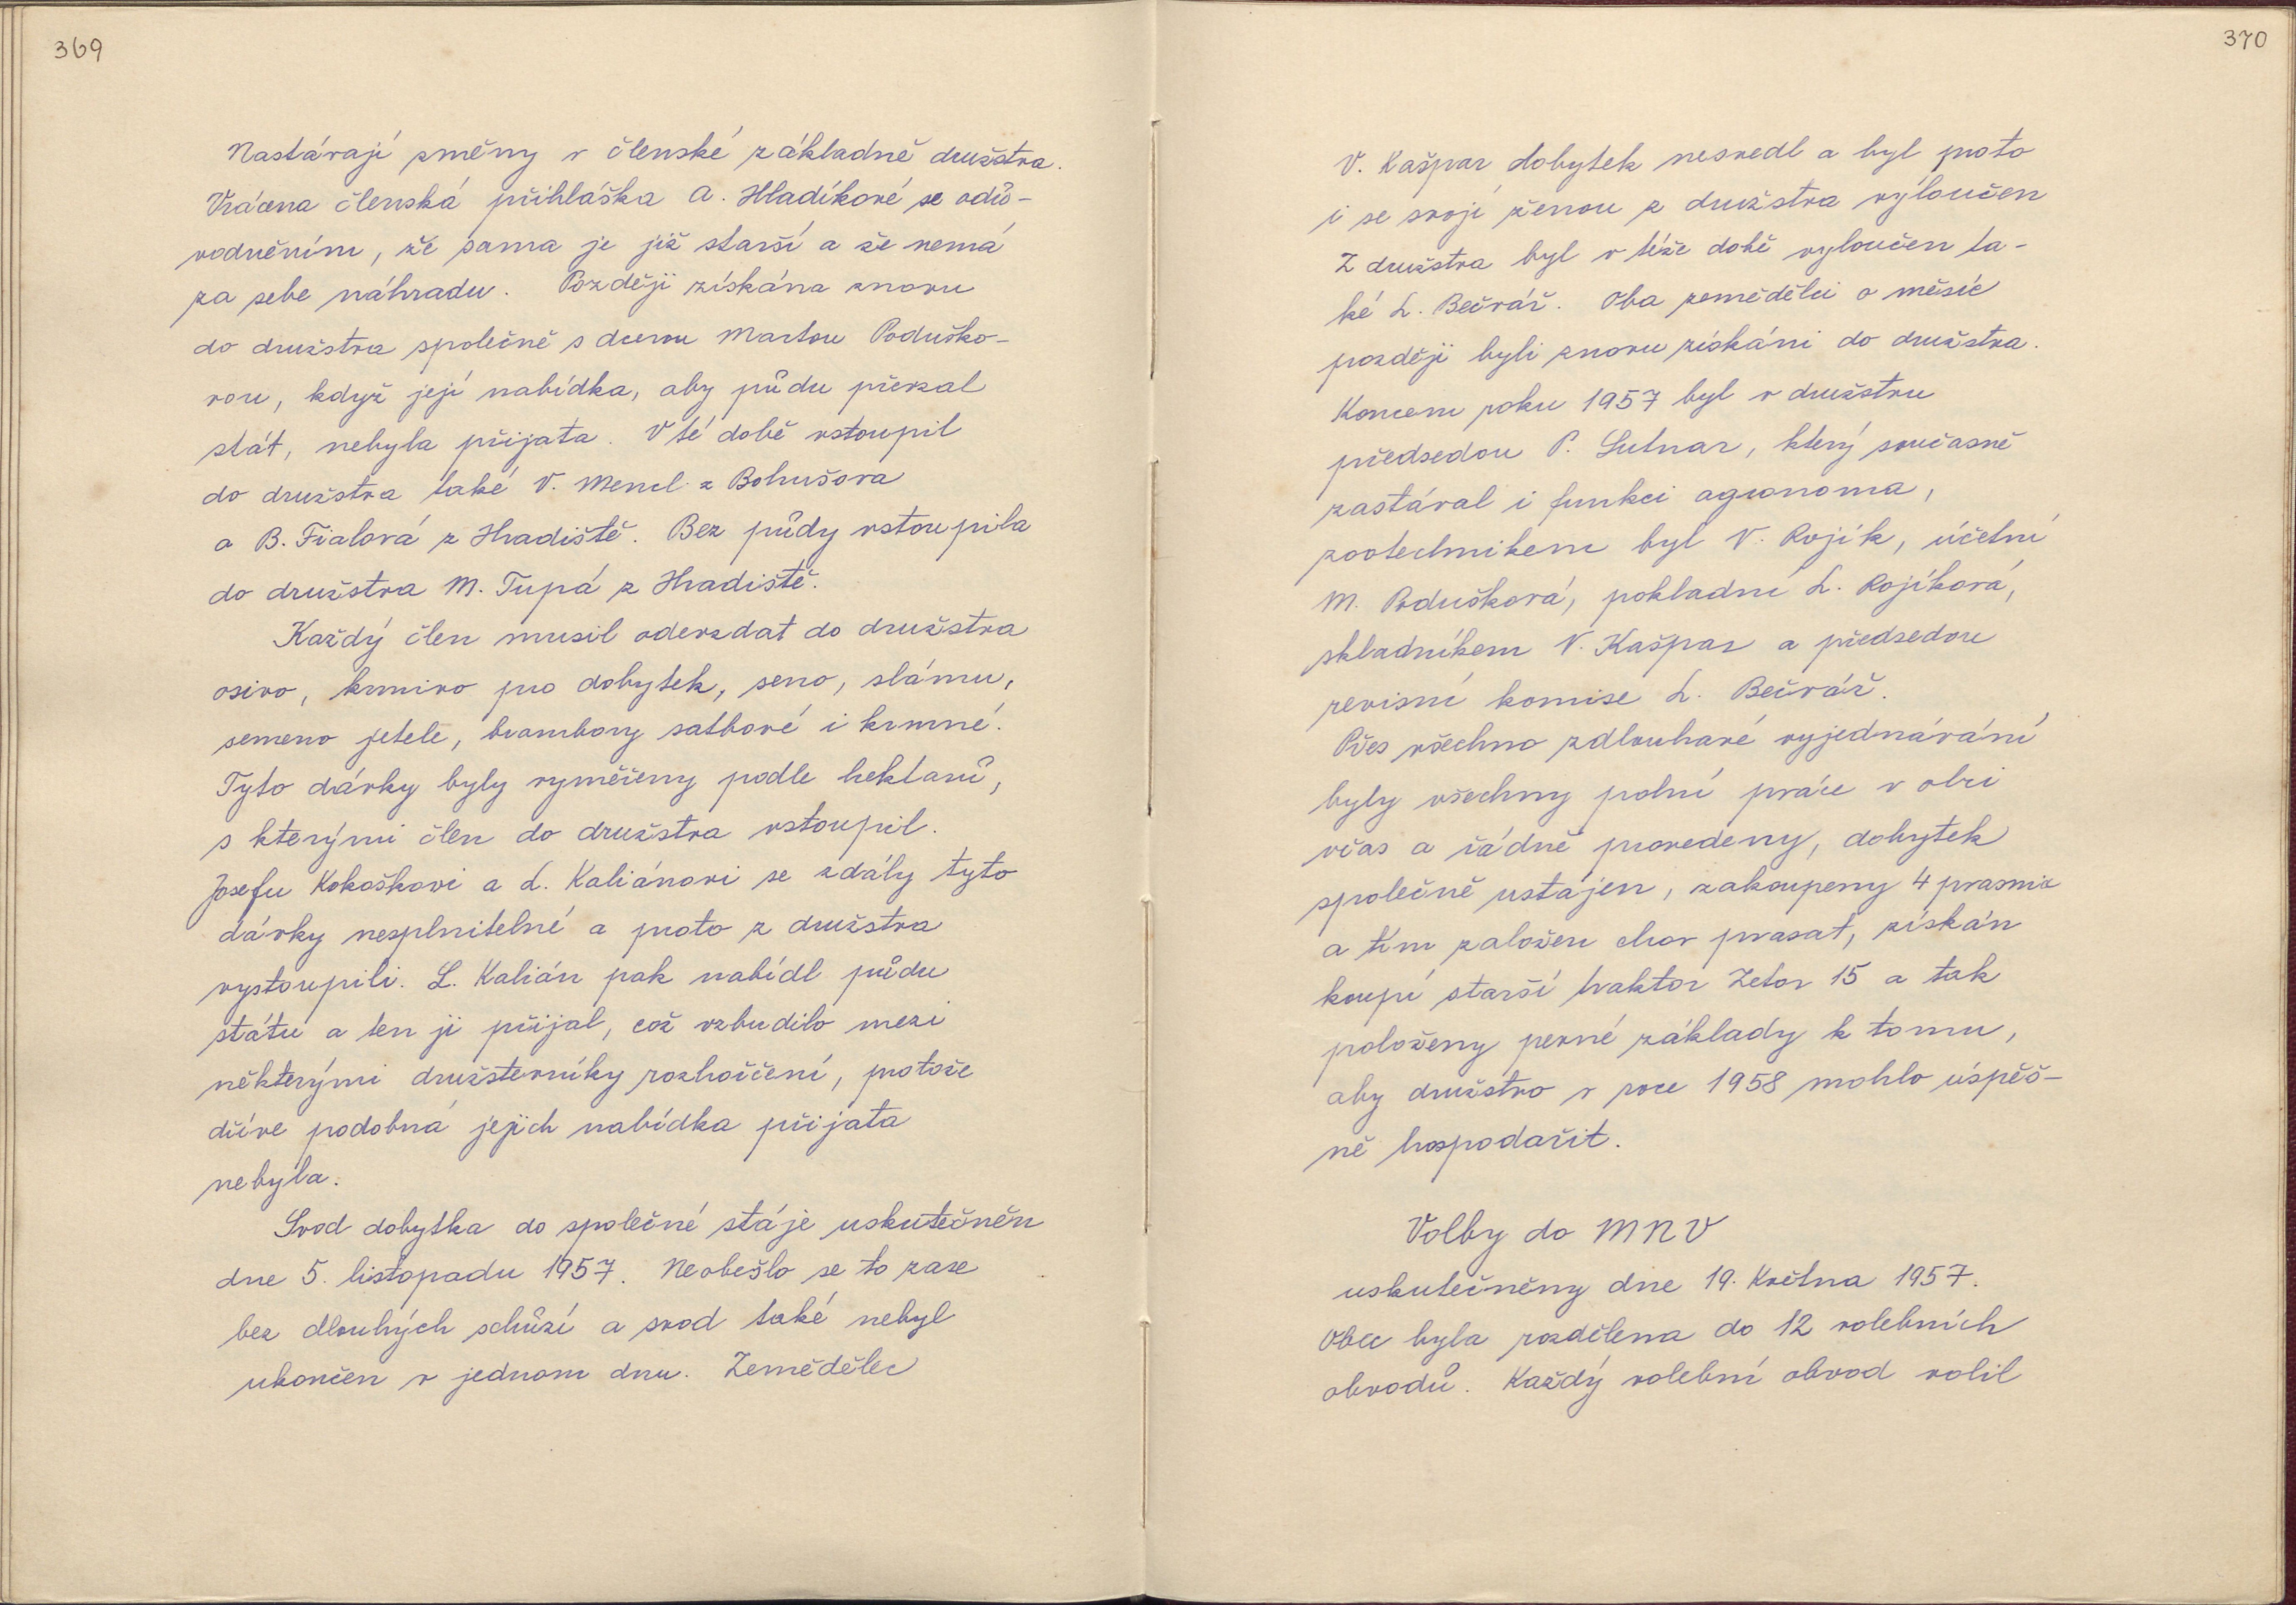 369
Nastávají změny v členské základně družstva.
Vrácena členská přihláška A. Hladíkové se odů-
vodněním, že sama je již starší a že nemá
za sebe náhradu. Později získána znovu
do družstva společně s dcerou Martou Poduško-
vou, když její nabídka, aby půdu převzal
stát, nebyla přijata. V té době vstoupil
do družstva také V. Mencl z Bohušova
a B. Fialová z Hradiště. Bez půdy vstoupila
do družstva M. Tupá z Hradiště.
Každý člen musil odevzdat do družstva
osivo, krmivo pro dobytek, seno, slámu,
semeno jetele, brambory satbové i krmné.
Tyto dávky byly vyměřeny podle hektarů,
s kterými člen do družstva vstoupil.
Josefu Kokoškovi a L. Kaliánovi se zdály tyto
dávky nesplnitelné a proto z družstva
vystoupili. L. Kalián pak nabídl půdu
státu a ten ji přijal, což vzbudilo mezi
některými družsterníky rozhořčení, protože
dříve podobná jejich nabídka přijata
nebyla.
Svod dobytka do společné stáje uskutečněn
dne 5. listopadu 1957. Neobešlo se to zase
bez dlouhých schůzí a svod také nebyl
ukončen v jednom dnu. Zemědělec
370
V. Kašpar dobytek nesvedl a byl proto
i se svojí ženou z družstva vyloučen
Z družstva byl v téže době vyloučen ta-
ké L. Bečvář. Oba zemědělci o měsíc
později byli znovu získáni do družstva.
Koncem roku 1957 byl v družstvu
předsedou P. Lutnar, který současně
zastával i funkci agronoma,
zootechnikem byl V. Rojík, účetní
M. Podušková, pokladní L. Rojíková,
skladníkem V. Kašpar a předsedou
revisní komise L. Bečvář.
Přes všechno zdlouhavé vyjednávání
byly všechny polní práce v obci
včas a řádně provedeny, dobytek
společně ustájen, zakoupeny 4 prasnice
a tím založen chov prasat, získán
koupí starší traktor Zetor 15 a tak
položeny pevné základy k tomu,
aby družstvo v roce 1958 mohlo úspěš-
ně hospodařit.
Volby do MNV
uskutečněny dne 19. Května 1957.
Obec byla rozdělena do 12 volebních
obvodů. Každý volební obvod volil